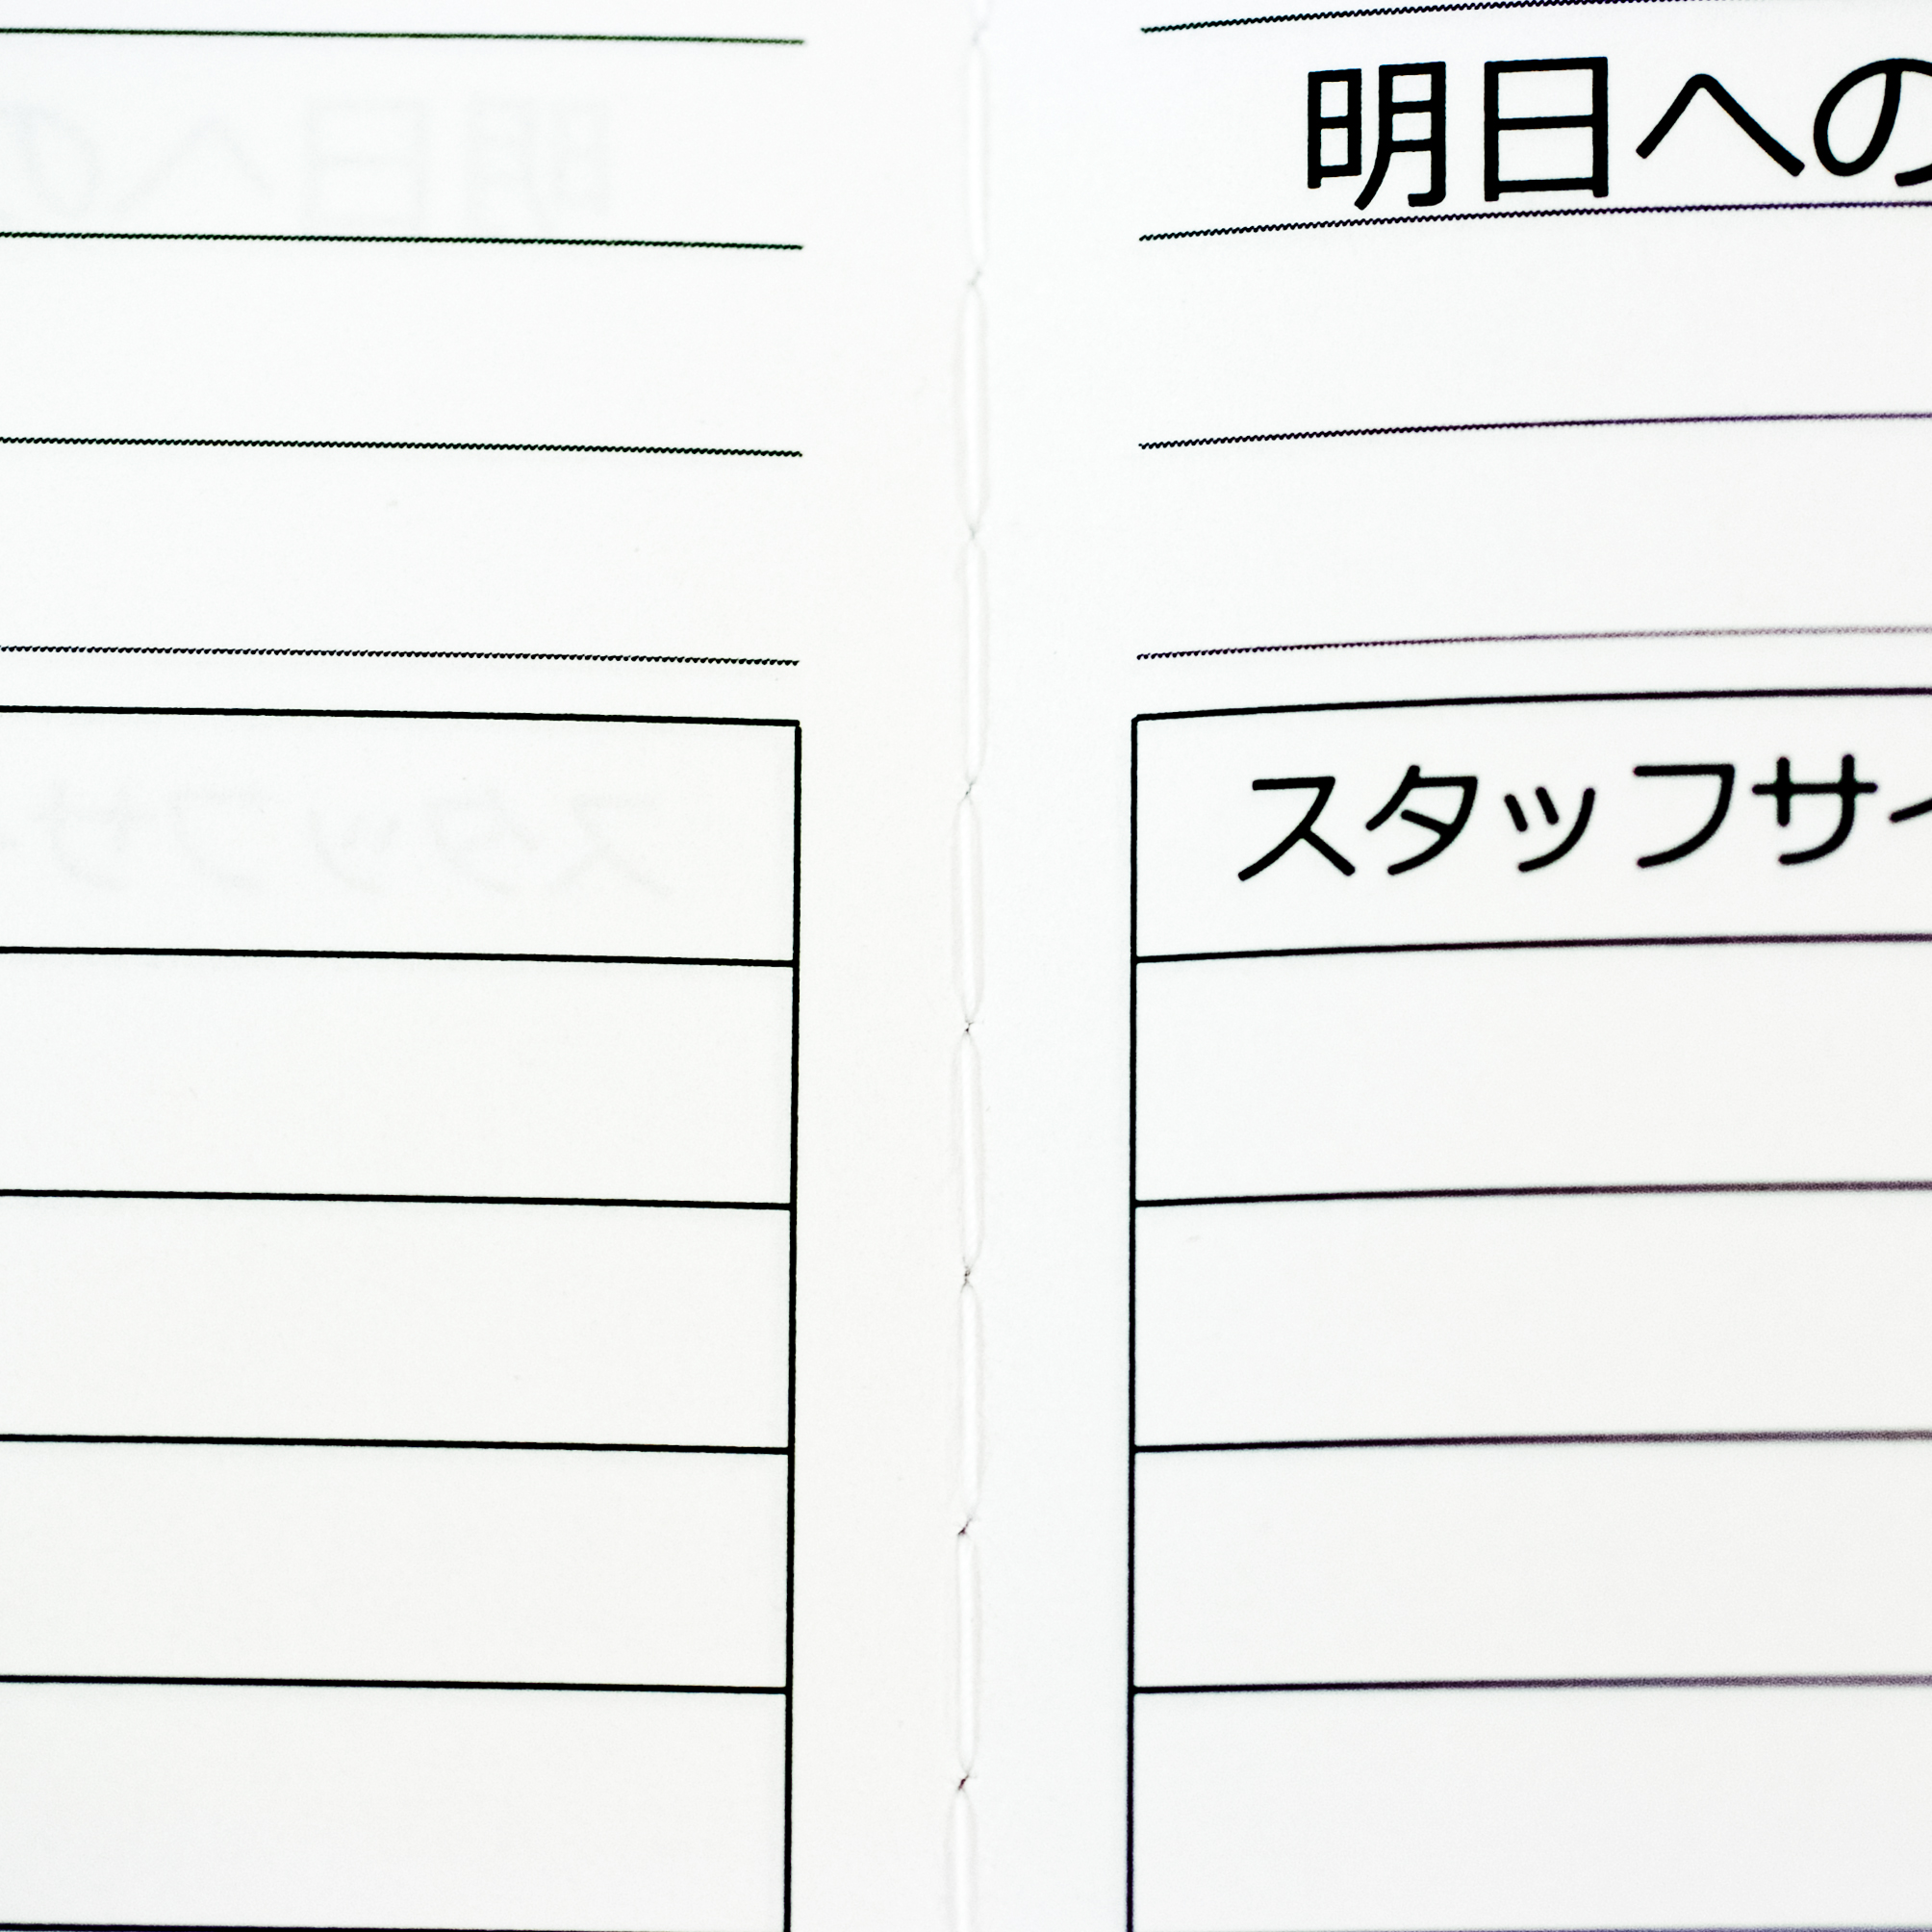 明日への
スタッフサイ